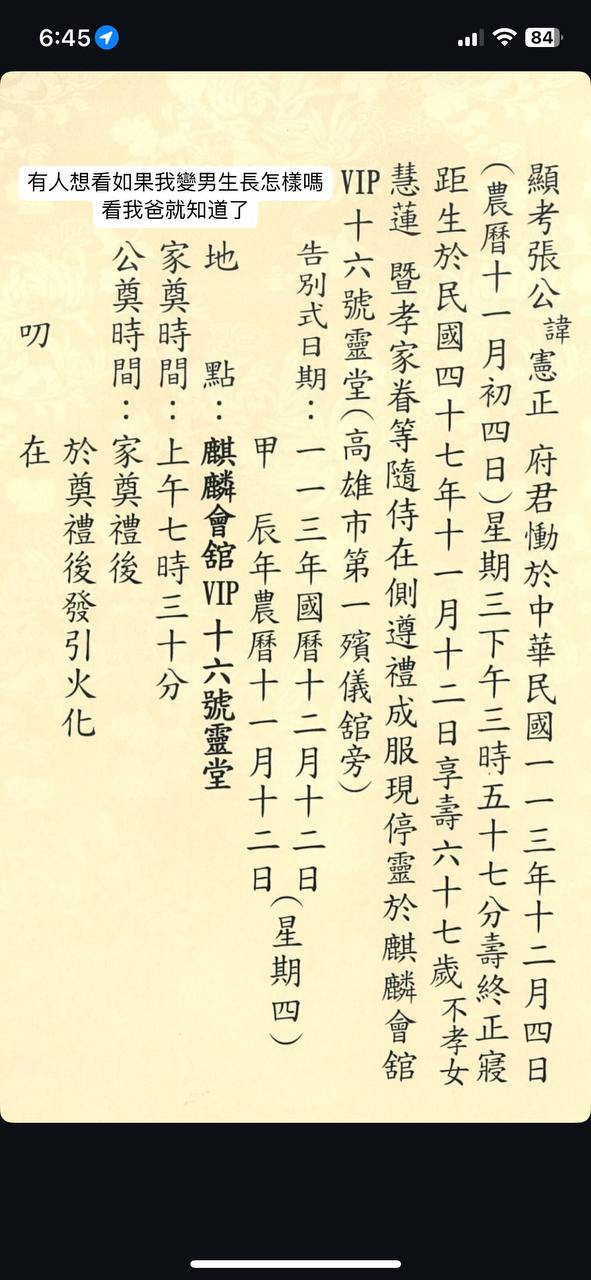 6:45
84
有人想看如果我變男生長怎樣嗎
看我爸就知道了
顯考張公諱憲正 府君慟於中華民國一一三年十二月四日
(農曆十一月初四日)星期三下午三時五十七分壽終正寢
距生於民國四十七年十一月十二日享壽六十七歲不孝女
慧蓮 暨孝家眷等隨侍在側遵禮成服現停靈於麒麟會舘
VIP十六號靈堂(高雄市第一殯儀舘旁)
告別式日期：一一三年國曆十二月十二日
甲辰年農曆十一月十二日(星期四)
地點：麒麟會舘VIP十六號靈堂
家奠時間：上午七時三十分
公奠時間：家奠禮後
於奠禮後發引火化
叨在